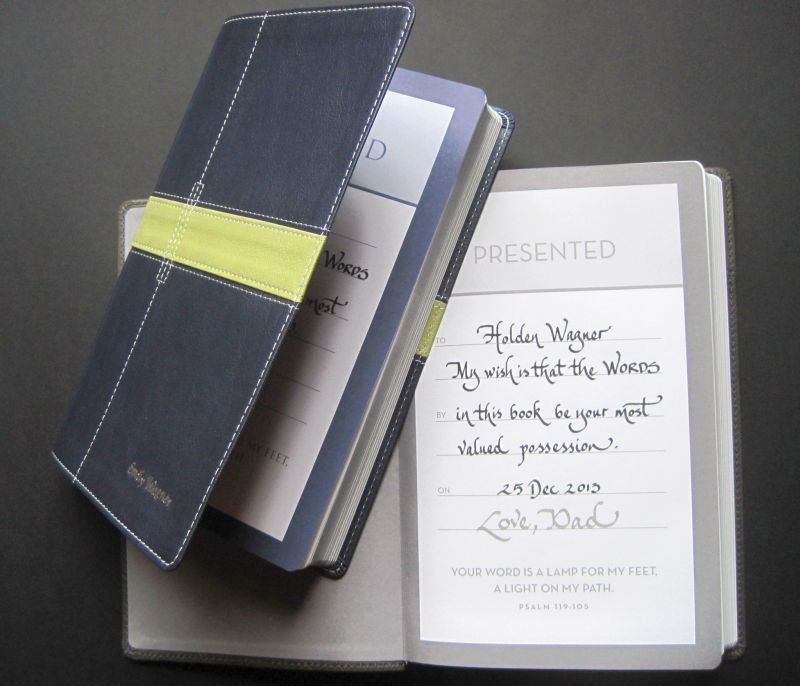 D
WORDS
most
MY FEET,
Emily Wagner
PRESENTED
TO Holden Wagner
My wish is that the WORDS
BY in this book be your most
valued possession.
ON 25 Dec 2013
Love, Dad
YOUR WORD IS A LAMP FOR MY FEET,
A LIGHT ON MY PATH.
PSALM 119:105